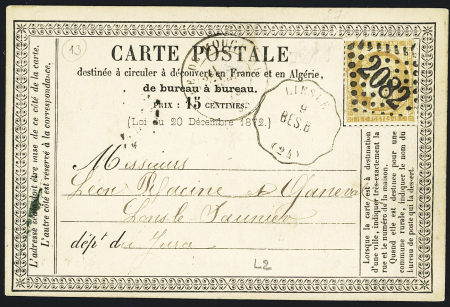 13
CARTE POSTALE
destinée à circuler à découvert en France et en Algérie,
de bureau à bureau.
PRIX : 15 CENTIMES.
(Loi du 20 Décembre 1872.)
2082
LIESLE
9
BES.B
(24)
L'adresse seule doit être mise de ce côté de la carte.
L'autre côté est réservé à la correspondance.
Messieurs
Léon et Ganeval
Lons le Saunier
dépt du Jura
L2
Lorsque la carte est à destination
d'une ville, indiquer très-exactement la
rue et le numéro de la maison.
Quand elle est destinée pour une
commune rurale, indiquer le nom du
bureau de poste qui la dessert.